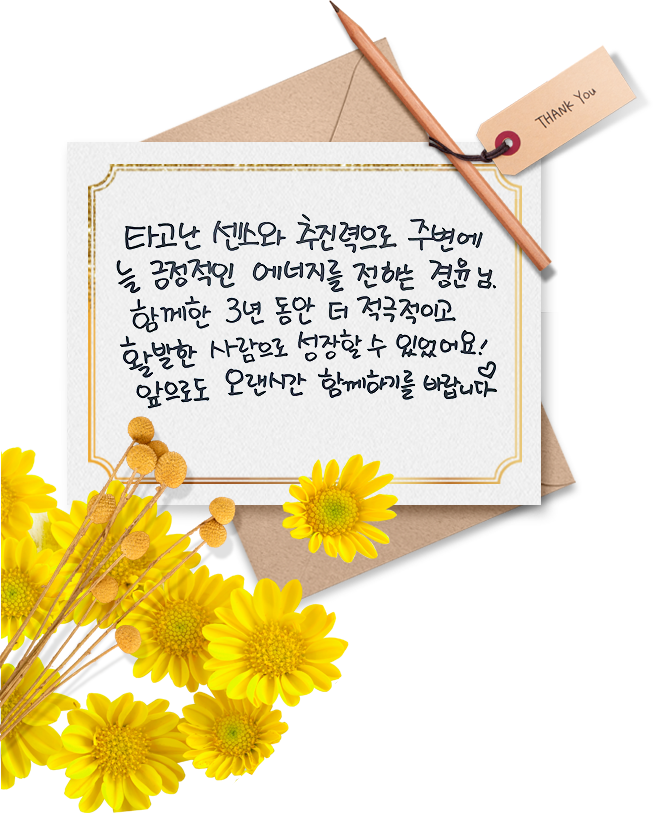 THANK YOU
타고난 센스와 추진력으로 주변에
늘 긍정적인 에너지를 전하는 경윤 님.
함께한 3년 동안 더 적극적이고
활발한 사람으로 성장할 수 있었어요!
앞으로도 오랜시간 함께하기를 바랍니다♡